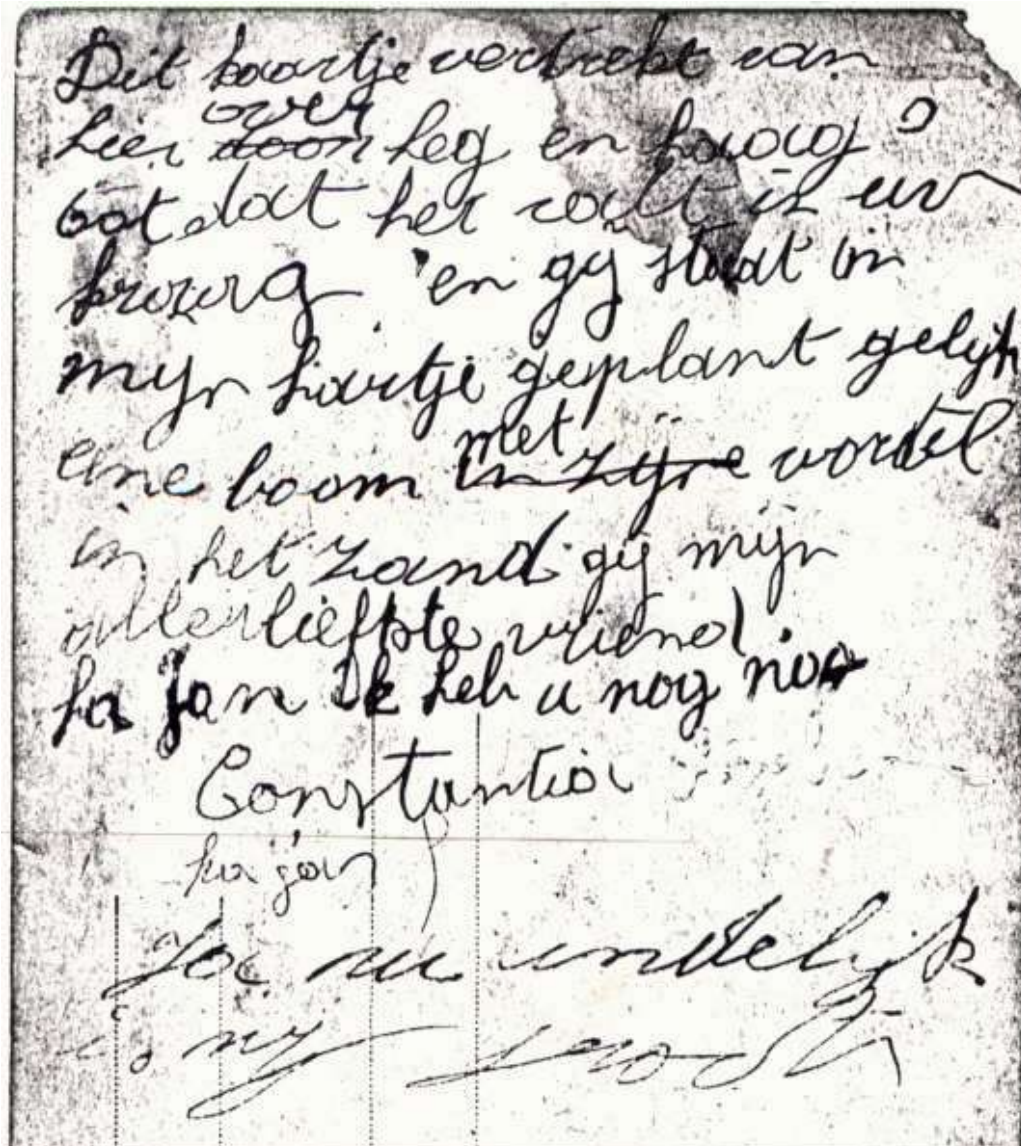 Dit kaartje vertrekt van
over
hier door heg en haag
tot dat het valt in uv
kraag en gij staat in
mijn hartje geplant gelijk
eene boom
met
in zijne wortel
in het zand gij mijn
allerliefste vriend
ha Jan ik heb u nog
Constantia
ha jan
Ja nu